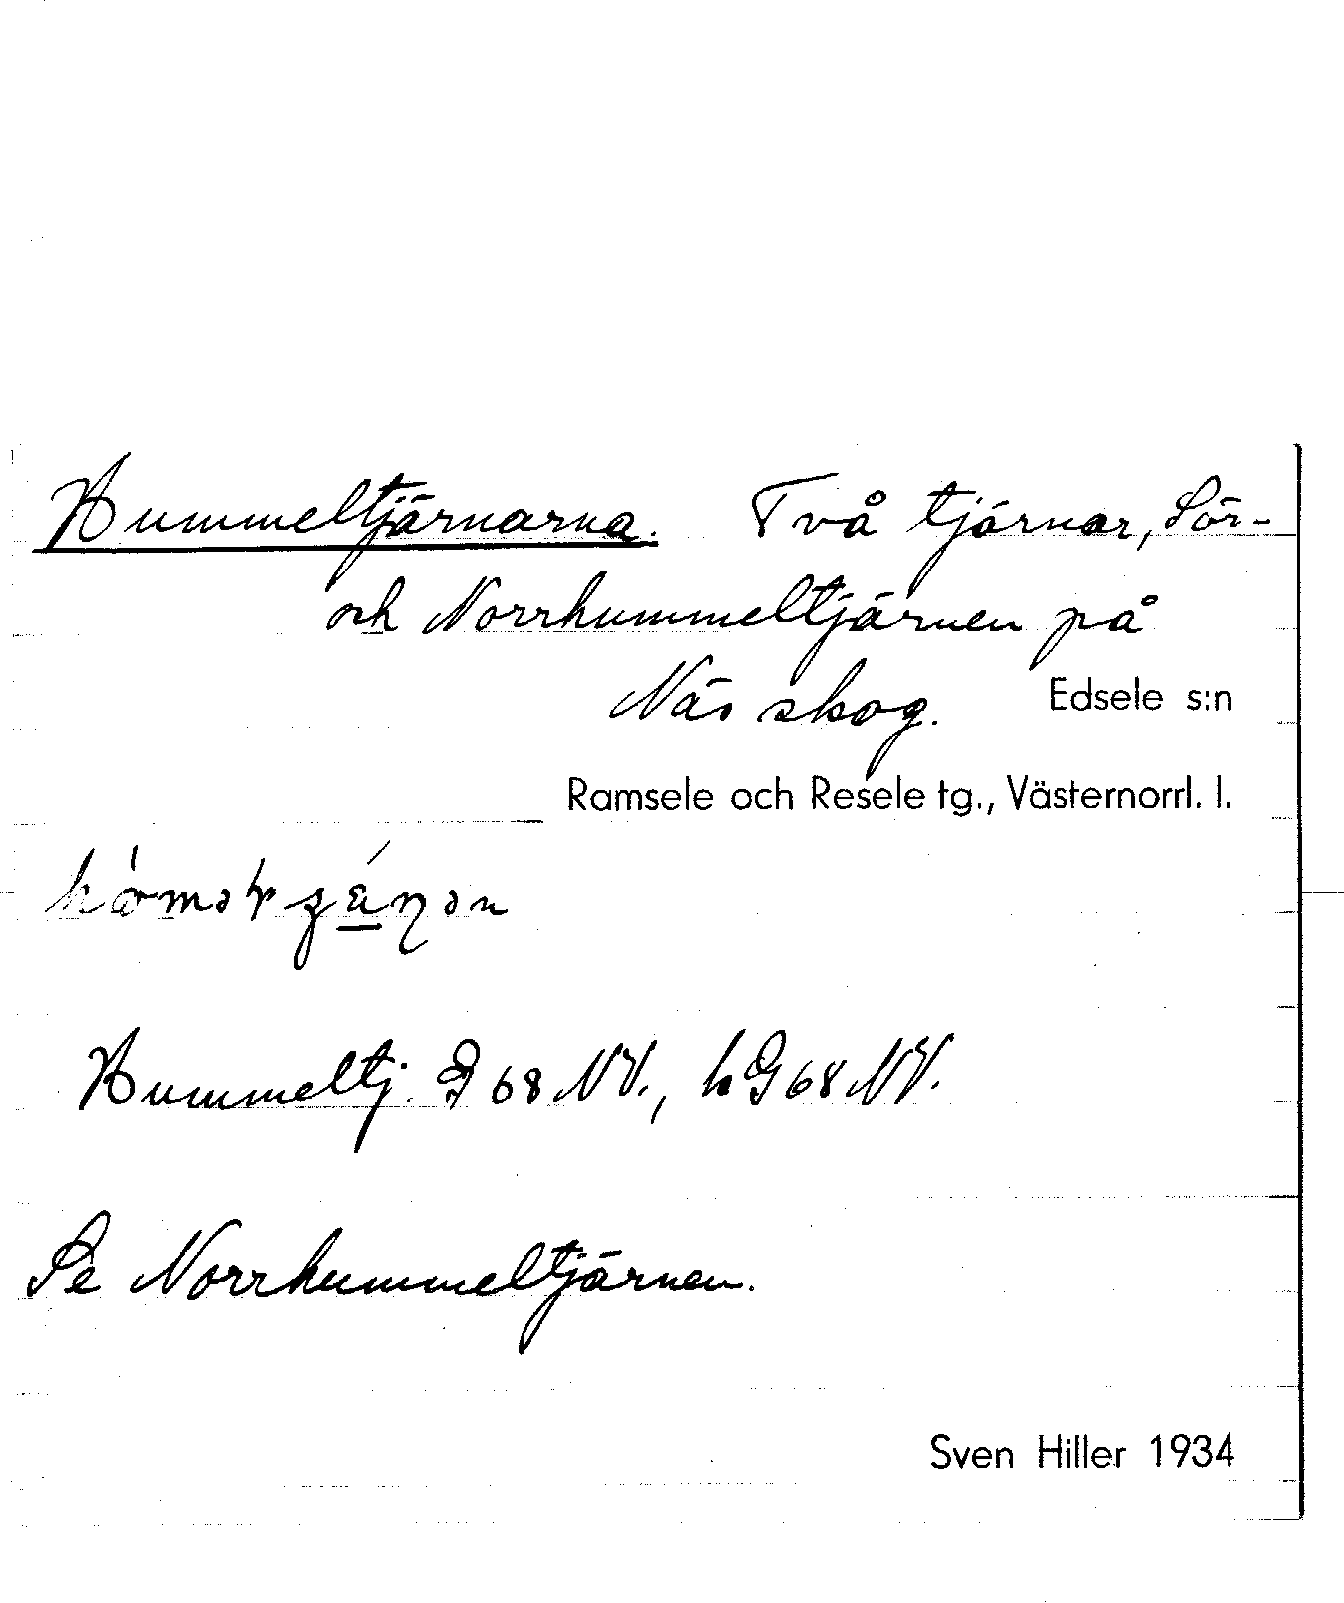 Hummeltjärnarna. Två tjärnar, Sör-
och Norrhummeltjärnen på
Näs skog. Edsele s:n
Ramsele och Resele tg., Västernorrl. l.
Hummeltj. G 68 NV., h G 68 NV.
Se Norrhummeltjärnen.
Sven Hiller 1934